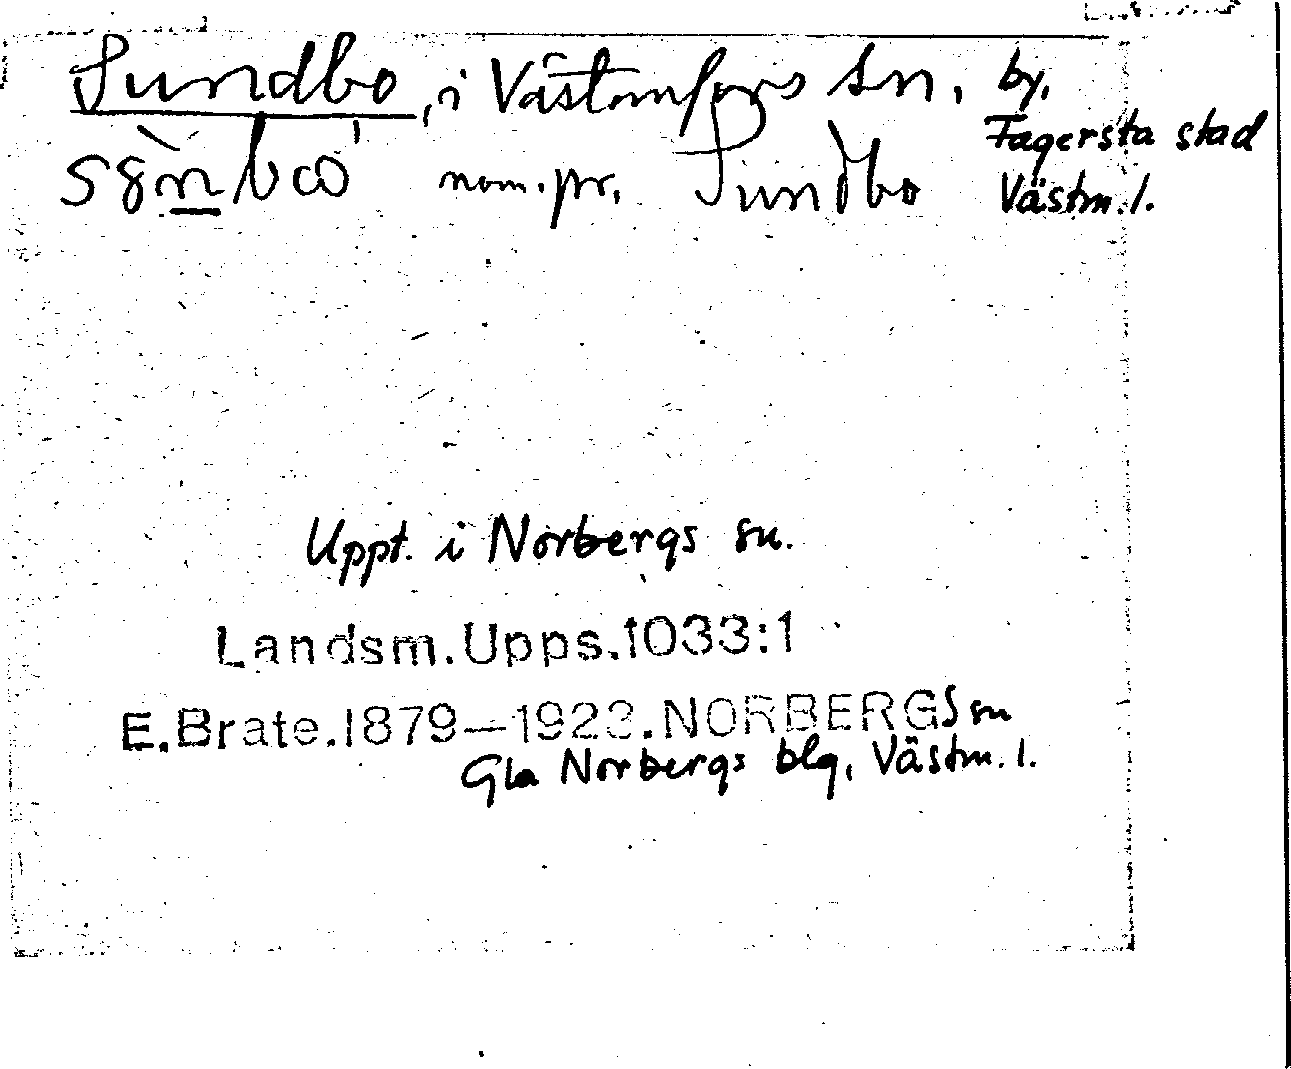 Sundbo, i Västanfors sn, by,
Fagersta stad
nom. pr. Sundbo Västm. l.
Uppt. i Norbergs sn.
Landsm.Upps.1033:1
E.Brate.1879–1923.NORBERGS sn
Gla Norbergs blg, Västm. l.